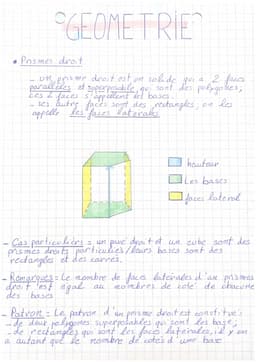 GEOMETRIE
• Prismes droit
- un prisme droit est un solide qui a 2 faces
parallèles et superposable qui sont des polygones,
Ces 2 faces s'appellent les bases
- ses autre faces sont des rectangles, on les
appelle les faces laterales
hauteur
Les bases
faces lateral
- Cas particuliers = un pavé droit et un cube sont des
prismes droits particulies, leurs bases sont des
rectangles et des carrés.
- Remarques = Le nombre de faces latérales d'un prismes
droit est égal au nombres de coté de chacune
des bases
- Patron = Le patron d'un prisme droit est constitué :
- de deux polygones superposables qui sont les base;
- de rectangles qui sont les faces latérales, il y en
a autant que le nombre de cotés d'une base